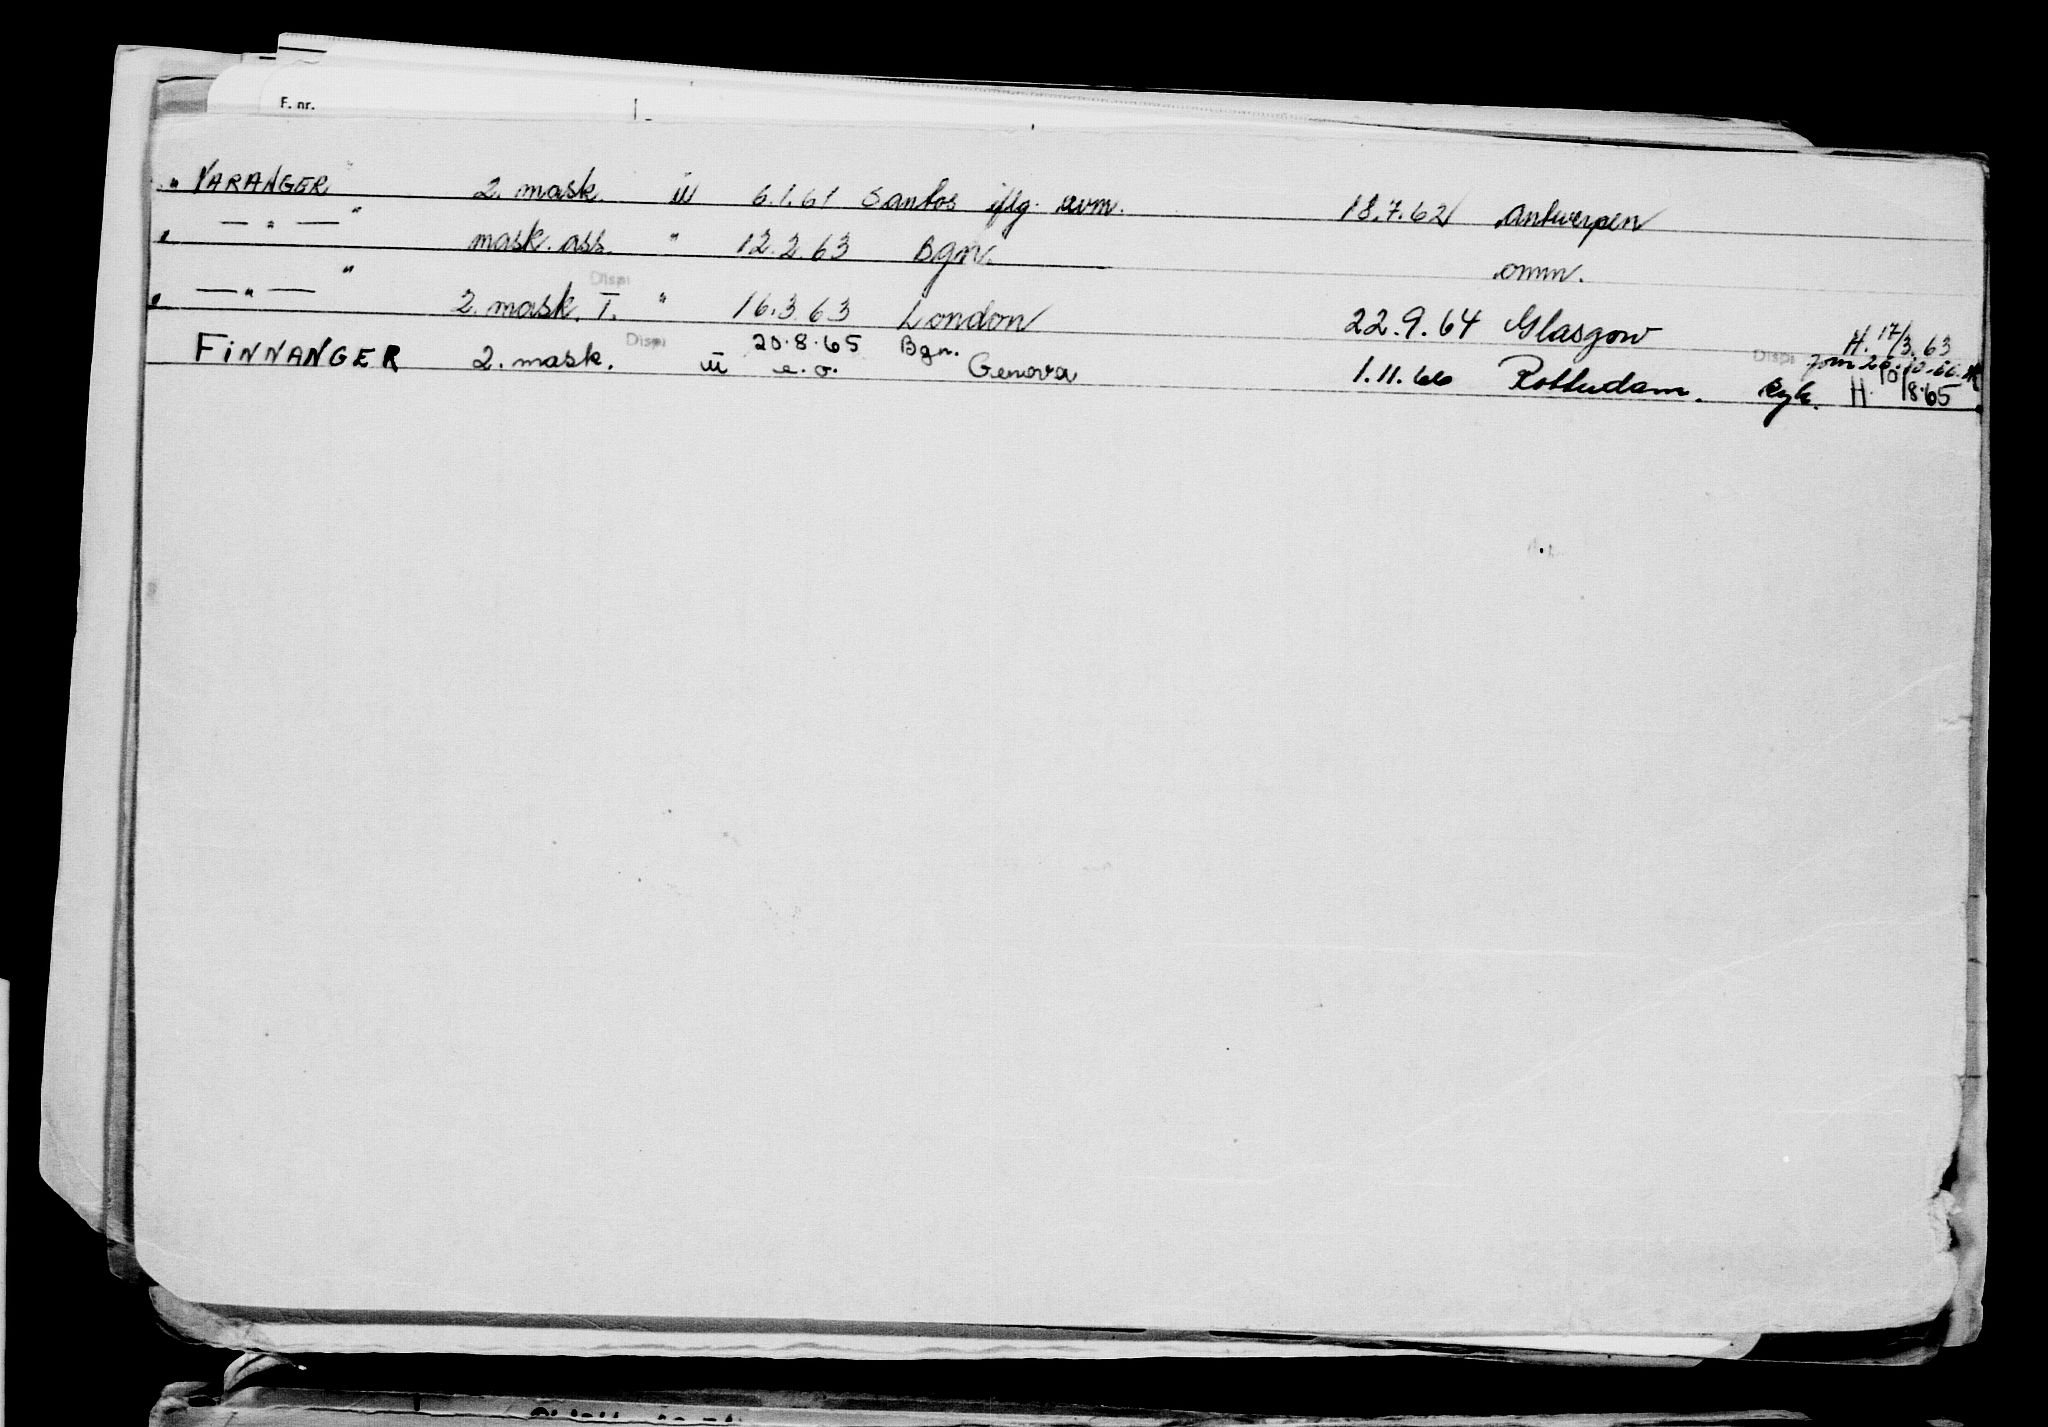 F. nr.
" VARANGER " 2. mask. iii 6.1.61 Santos iflg. avm. 18.7.62 Antwerpen
" — " — " mask. ass. " 12.2.63 Bgn. omm.
" — " — " 2. mask. I. Dispi " 16.3.63 London 22.9.64 Glasgow H. 17/3.63
FINNANGER 2. mask. Dispi iii 20.8.65 Bgn. e.o. Genova 1.11.66 Rotterdam. Dispi syk. H. 10/8.65